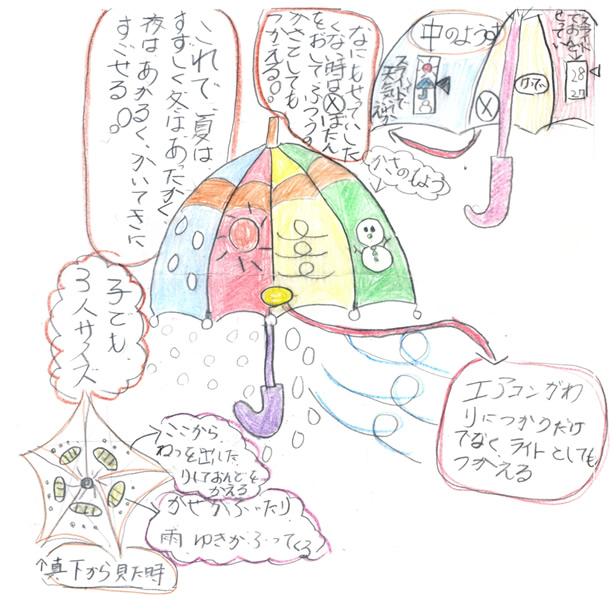 これで、夏は
すずしく冬はあたかく
夜はあかるく、かいてきに
すごせる。
なにもせっていした
くな時はⓍぼたん
をおしてふつうの
かさとしても
つかえる。
中のようす
スライドで
天気
Ⓧ
スライド
でおんど
せってい
28
27
かさのよう
子ども
3人サイズ
エアコンがわ
りにつかうだけ
でなく、ライトとしても
つかえる
ここから
ねつを出した
りしておんどを
かえる
かぜがふいたり
雨ゆきがふってくる
↑真下から見た時